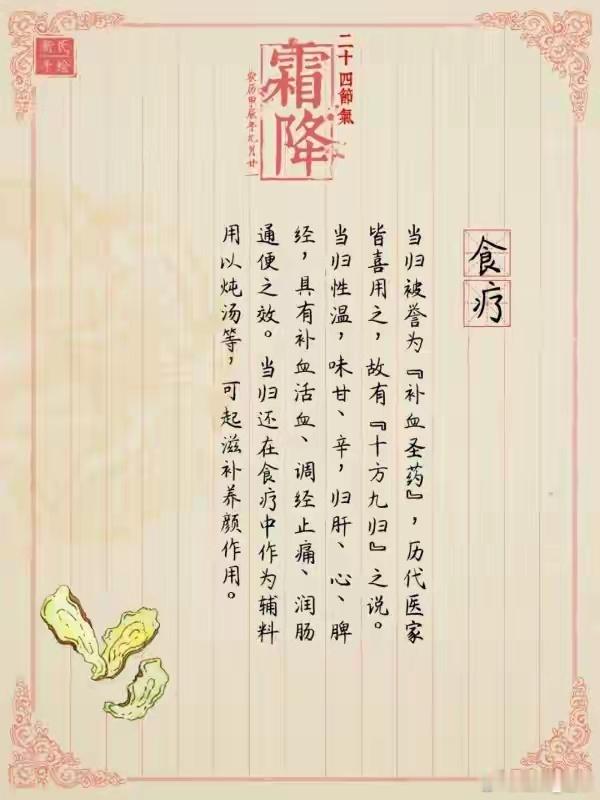 二十四節氣
霜降
农历甲辰年九月廿一
食疗
当归被誉为『补血圣药』，历代医家
皆喜用之，故有『十方九归』之说。
当归性温，味甘、辛，归肝、心、脾
经，具有补血活血、调经止痛、润肠
通便之效。当归还在食疗中作为辅料
用以炖汤等，可起滋补养颜作用。